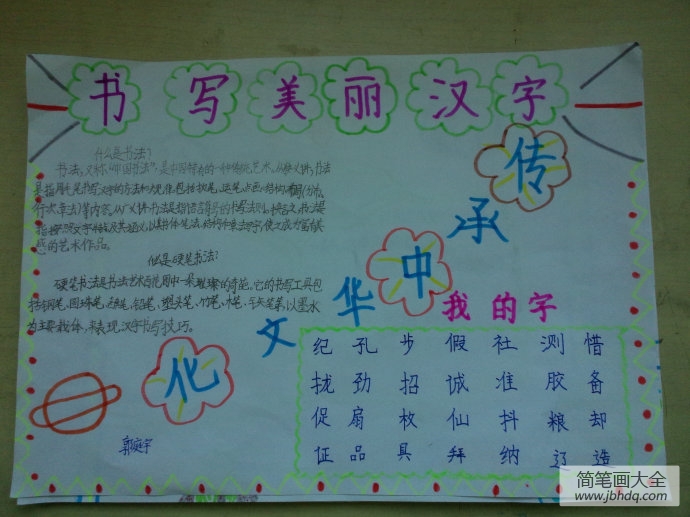 书写美丽汉字
什么是书法?
书法,又称“中国书法”,是中国特有的一种传统艺术。从狭义讲,书法
是指用毛笔书写汉字的方法和规律。包括执笔、运笔、点画、结构、布局(分布、
行次、章法)等内容。从广义讲,书法是指语言符号的书写法则。换言之,书法是
指按照文字特点及其涵义,以其书体笔法、结构和章法写字,使之成为富有美
感的艺术作品。
什么是硬笔书法?
硬笔书法是书法艺术百花园中一朵璀璨的奇葩,它的书写工具包
括钢笔、圆珠笔、铅笔、塑头笔、竹笔、木笔、以墨水
为主要载体,表现汉字书写技巧。
传承中华文化
我的字
纪 孔 步 假 社 测 惜
拢 劲 招 诚 准 胶 备
促 扇 枚 仙 抖 粮 却
征 品 具 拜 纳 迈 造
郭庭宇
简笔画大全
www.jbhdq.com